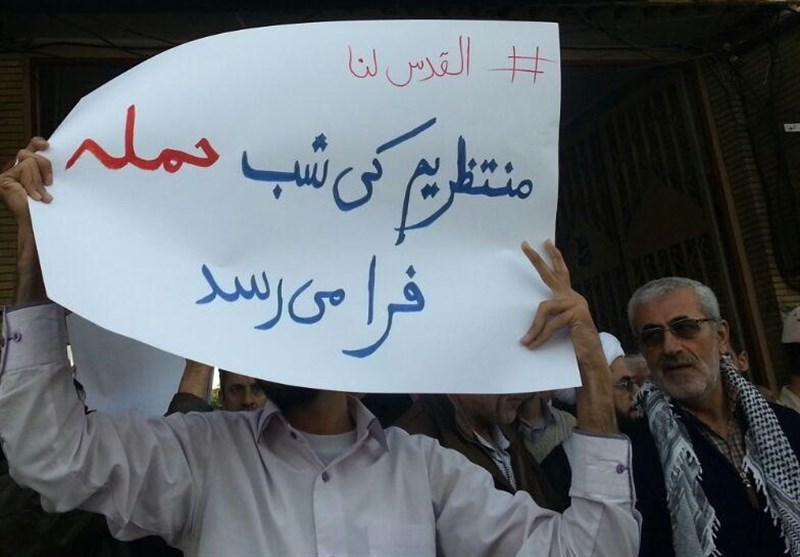 # القدس لنا
منتظریم کی شب حمله
فرا می رسد